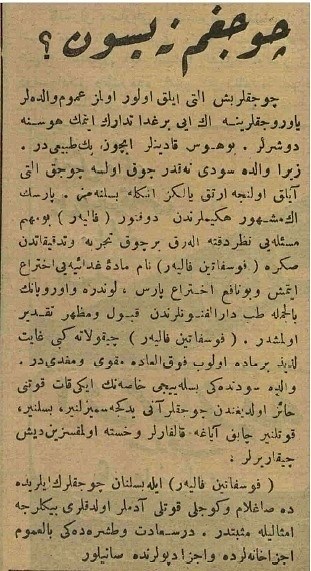 چوجغم نه یسون؟
چوجقلر بش التی ایلق اولور اولماز عموم والده لر
یاوروجقلرینه اك ایی بر غدا تدارك ایتمك هوسنه
دوشرلر . بو هوس قادینلر ایچون پك طبیعی در .
زیرا والده سودی نه قدر چوق اولسه چوجق التی
آیلق اولنجه ارتق یالكز انكله بسلنه مز . پارسك
اك مشهور حكیملرندن دوقتور ( فالیه ر ) بو مهم
مسئله یی نظر دقته اله رق بر چوق تجربه وتدقیقاتدن
صكره ( فوسفاتین فالیه ر ) نام ماده غدائیه یی اختراع
ایتمش و بو نافع اختراع پارس ، لوندره و اوروپانك
بالجمله طب دارالفنونلرندن قبول ومظهر تقدیر
اولمشدر . ( فوسفاتین فالیه ر ) چیقولاته كبی غایت
لذیذ بر ماده اولوب فوق العاده مقوی ومغدی در .
والده سودنده كی بسله ییجی خاصه نك ایكی قات قوتنی
حائز اولدیغندن چوجقلر آنی یدكجه سمیزلنیر، بسلنیر،
قوتلنیر چابق آیاغه قالقارلر وخسته اولمقسزین دیش
چیقاریرلر .
( فوسفاتین فالیه ر ) ایله بسلنان چوجقلرك ایلریده
ده صاغلام وكوجلی قوتلی آدملر اولدقلری بیكلرجه
امثالیله مثبتدر . درسعادت وطشره ده كی بالعموم
اجزاخانه لرده واجزا دپولرنده صاتیلور